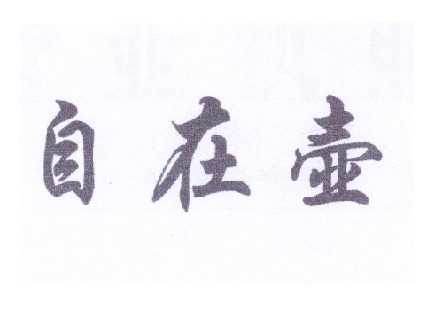 自在壶